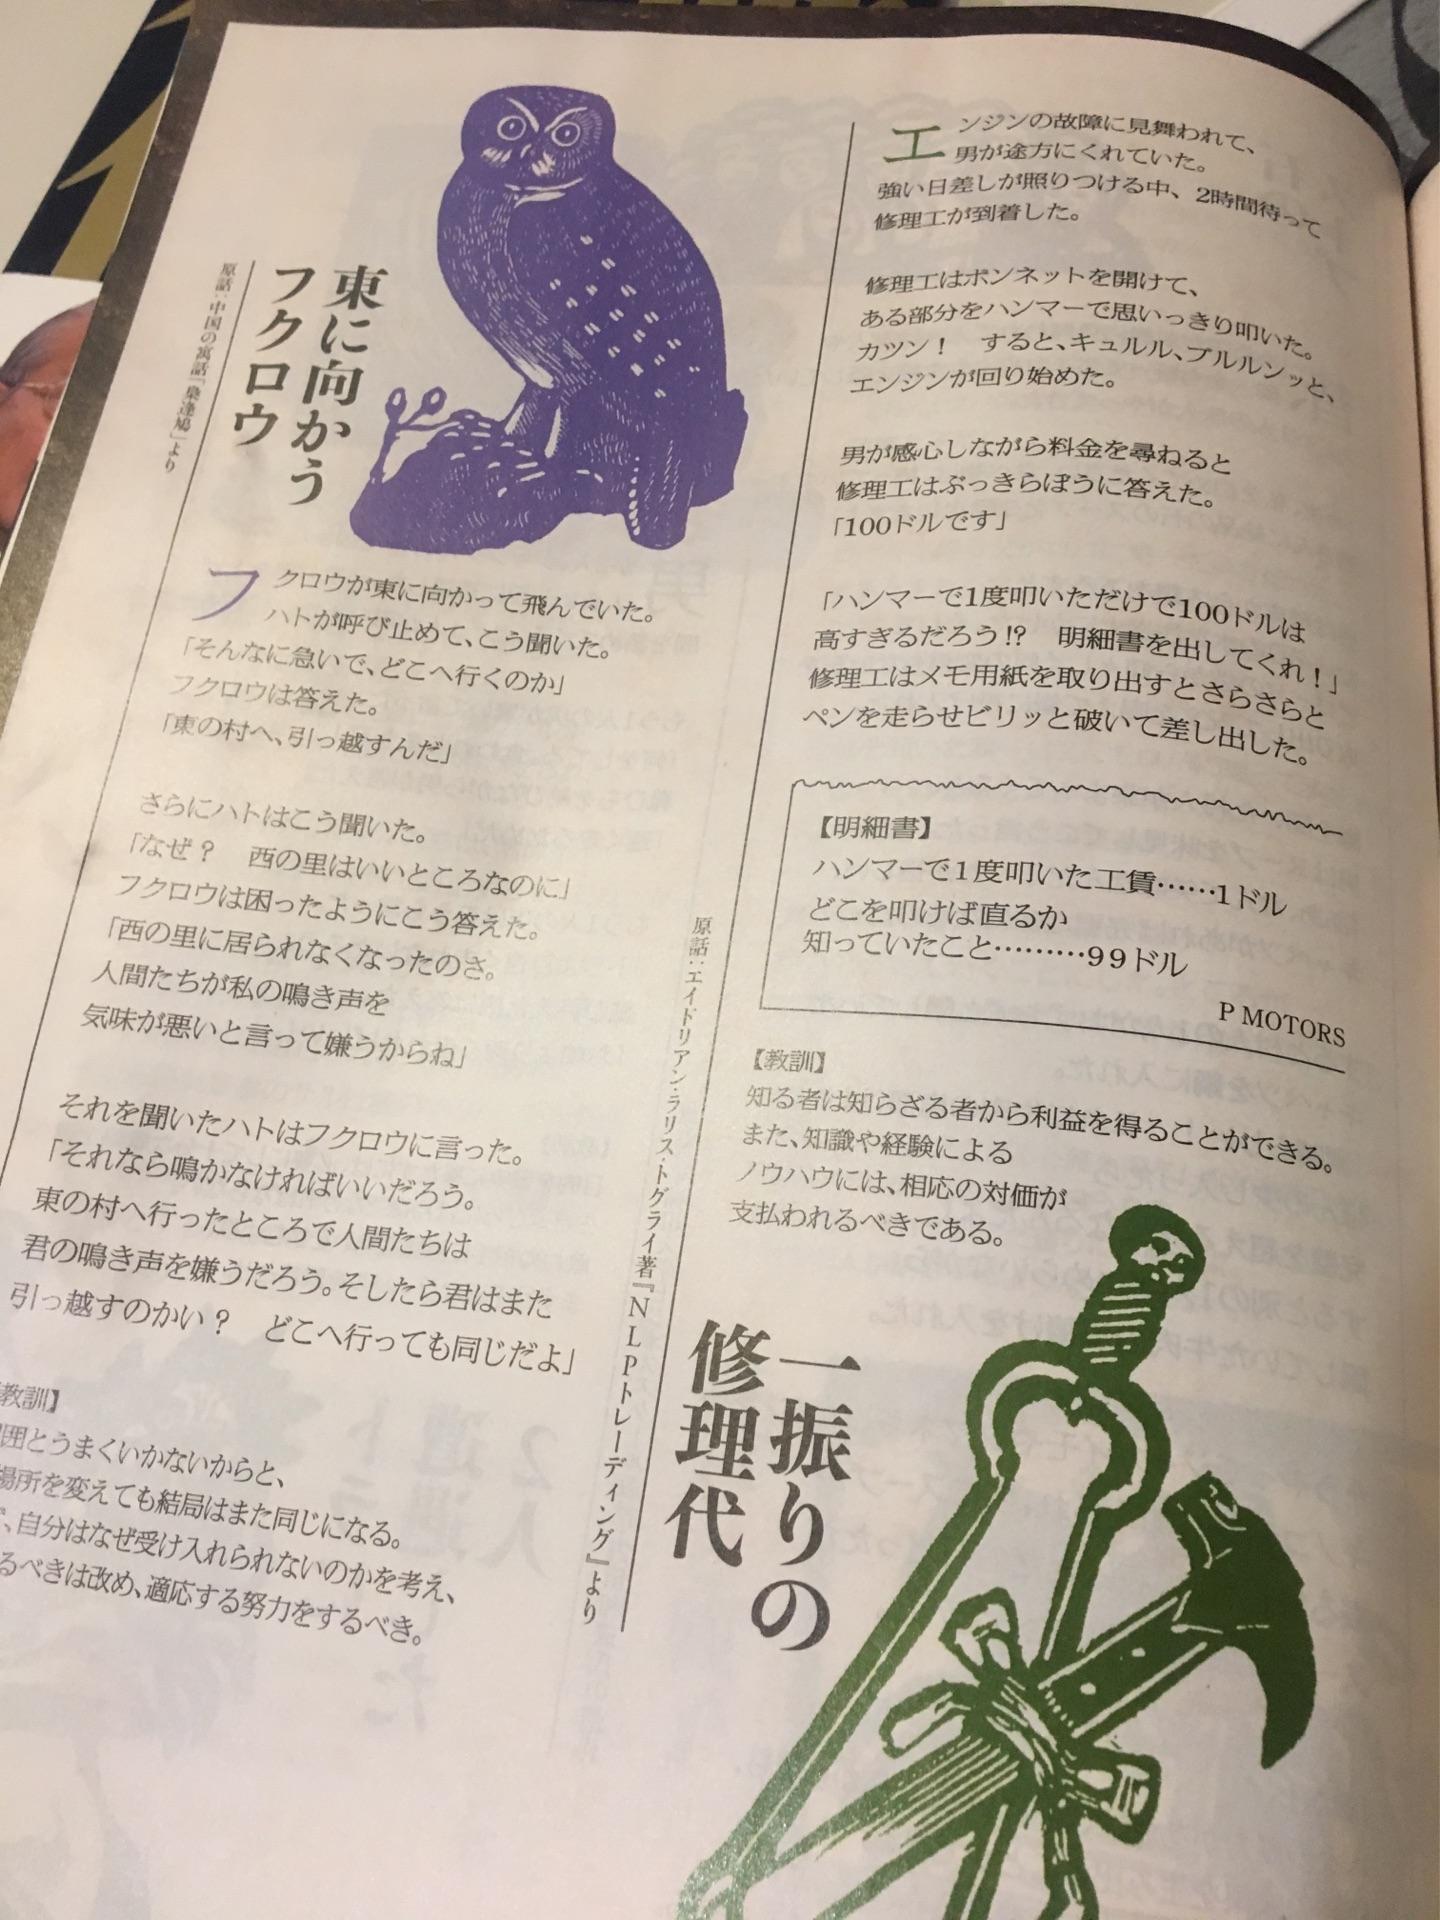 東に向かう
フクロウ
原話:中国の寓話『梟逢鳩』より
フクロウが東に向かって飛んでいた。
ハトが呼び止めて、こう聞いた。
「そんなに急いで、どこへ行くのか」
フクロウは答えた。
「東の村へ、引っ越すんだ」
さらにハトはこう聞いた。
「なぜ?　西の里はいいところなのに」
フクロウは困ったようにこう答えた。
「西の里に居られなくなったのさ。
人間たちが私の鳴き声を
気味が悪いと言って嫌うからね」
それを聞いたハトはフクロウに言った。
「それなら鳴かなければいいだろう。
東の村へ行ったところで人間たちは
君の鳴き声を嫌うだろう。そしたら君はまた
引っ越すのかい?　どこへ行っても同じだよ」
教訓】
囲とうまくいかないからと、
場所を変えても結局はまた同じになる。
、自分はなぜ受け入れられないのかを考え、
るべきは改め、適応する努力をするべき。
一振りの
修理代
原話:エイドリアン・ラリス・トグライ著『NLPトレーディング』より
エンジンの故障に見舞われて、
男が途方にくれていた。
強い日差しが照りつける中、2時間待って
修理工が到着した。
修理工はボンネットを開けて、
ある部分をハンマーで思いっきり叩いた。
カツン!　すると、キュルル、ブルルンッと、
エンジンが回り始めた。
男が感心しながら料金を尋ねると
修理工はぶっきらぼうに答えた。
「100ドルです」
「ハンマーで1度叩いただけで100ドルは
高すぎるだろう!?　明細書を出してくれ!」
修理工はメモ用紙を取り出すとさらさらと
ペンを走らせビリッと破いて差し出した。
【明細書】
ハンマーで1度叩いた工賃……1ドル
どこを叩けば直るか
知っていたこと………99ドル
P MOTORS
【教訓】
知る者は知らざる者から利益を得ることができる。
また、知識や経験による
ノウハウには、相応の対価が
支払われるべきである。